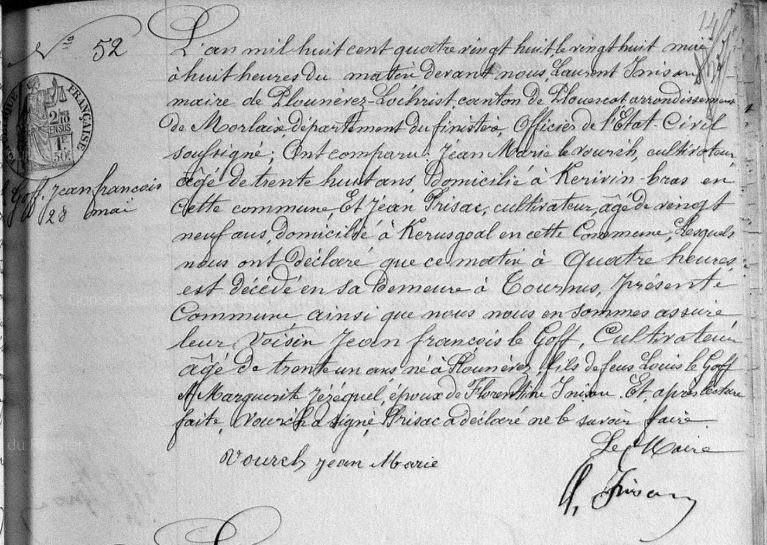 N° 52
Le Goff, Jean françois
28 maï
L'an mil huit cent quatre vingt huit le vingt huit mai
à huit heures du matin devant nous Laurent Inisan
maire de Plounévez-Lochrist, canton de Plouescat, arrondissement
de Morlaix département du finistère, Officier de l'Etat Civil
soussigné; Ont comparu: Jean Marie le vourch, cultivateur,
âgé de trente huit ans, domicilié à Kerivin-bras en
cette commune, Et Jean Prisac, cultivateur, âgé de vingt
neuf ans, domicilié à Kerusgoal en cette Commune, Lesquels
nous ont déclaré que ce matin à quatre heures
est décédé en sa demeure à Tournus, présente
Commune ainsi que nous nous en sommes assuré
leur Voisin Jean françois le Goff, Cultivateur
âgé de trente un ans né à Plounévez, fils de feus Louis le Goff
et Marguerite Jézéquel, époux de Florentine Inisan. Et, après lecture
faite, Vourch a signé, Prisac a déclaré ne le savoir faire
Le Maire
Vourch jean Marie
L. Inisan
RÉPUBLIQUE FRANÇAISE
2/10 EN SUS
1F 50C